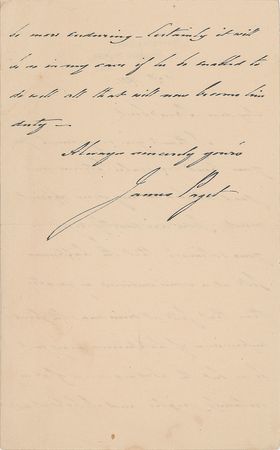 be more enduring – Certainly it will
be so in my case if he be enabled to
do well all that will now become his
duty –
Always sincerely yours
James Paget